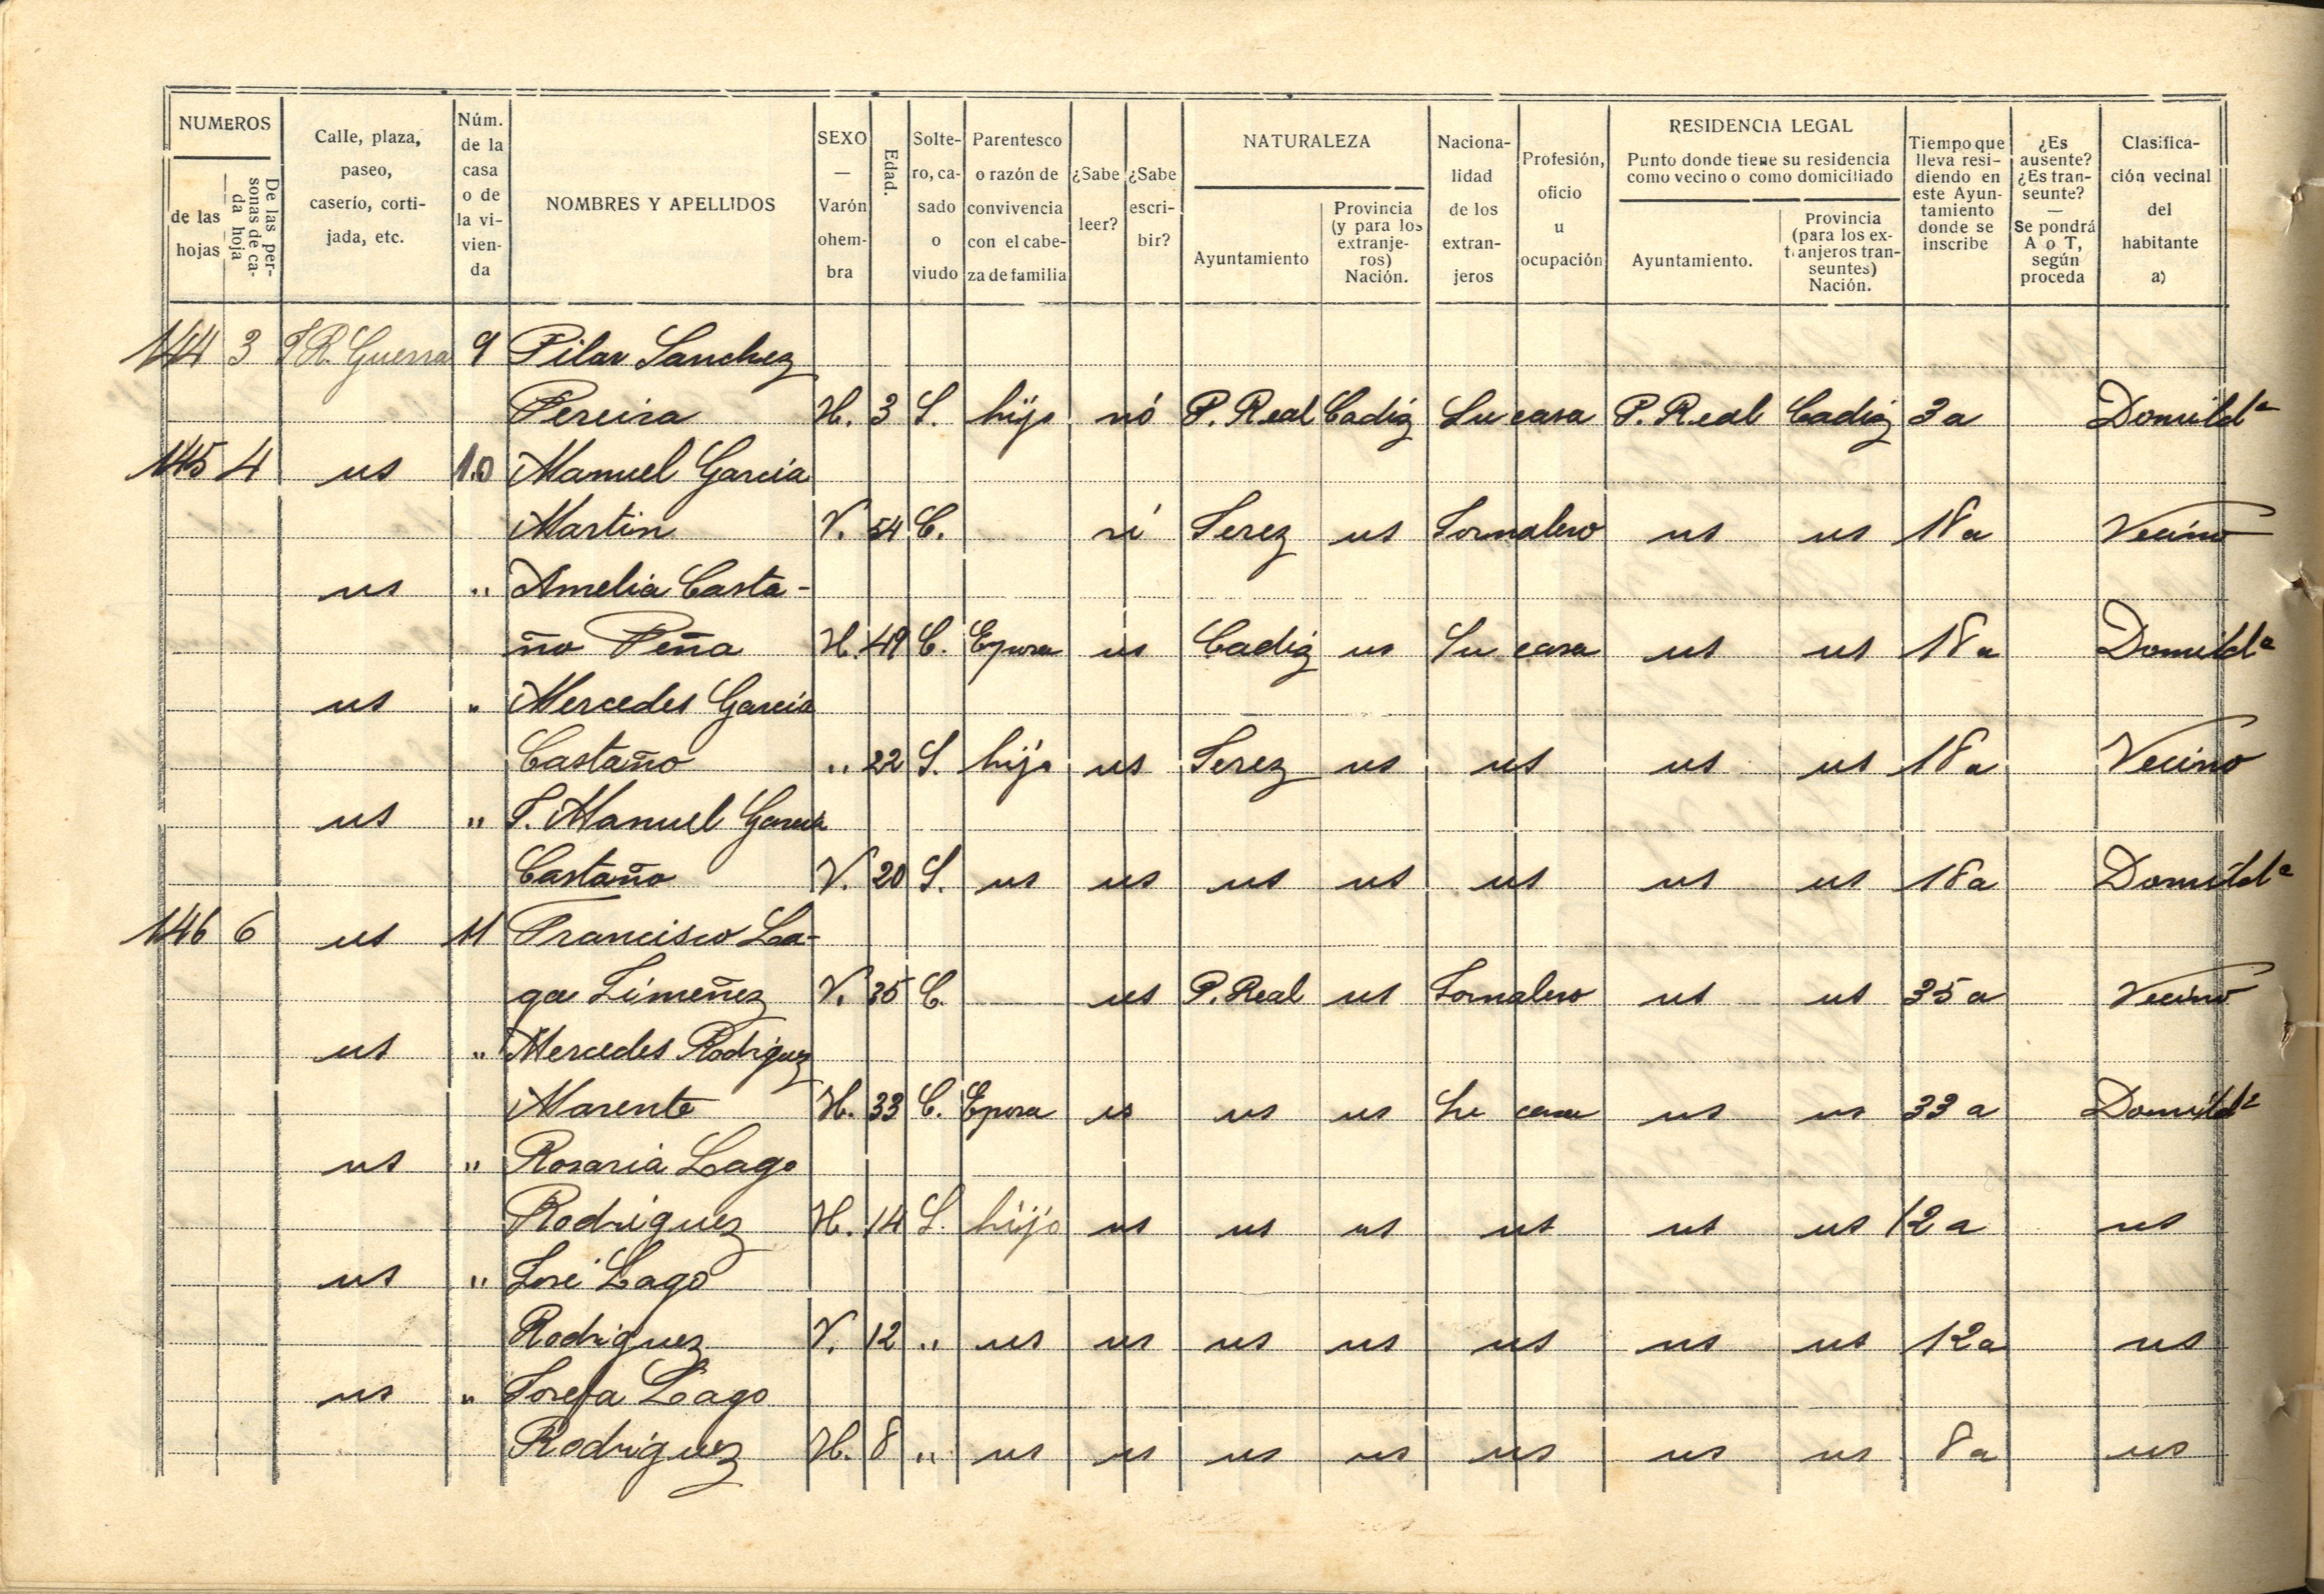 NUMEROS
de las hojas
De las personas de cada hoja
Calle, plaza, paseo, caserío, cortijada, etc.
Núm. de la casa o de la vivienda
NOMBRES Y APELLIDOS
SEXO — Varón o hembra
Edad.
Soltero, casado o viudo
Parentesco o razón de convivencia con el cabeza de familia
¿Sabe leer?
¿Sabe escribir?
NATURALEZA
Ayuntamiento
Provincia (y para los extranjeros) Nación.
Nacionalidad de los extranjeros
Profesión, oficio u ocupación
RESIDENCIA LEGAL
Punto donde tiene su residencia como vecino o como domiciliado
Ayuntamiento.
Provincia (para los extranjeros transeuntes) Nación.
Tiempo que lleva residiendo en este Ayuntamiento donde se inscribe
¿Es ausente? ¿Es transeunte? — Se pondrá A o T, según proceda
Clasificación vecinal del habitante a)
144 3 T R. Guerra 9 Pilar Sanchez
Pereira H. 3 S. hijo nó P. Real Cadiz Su casa P. Real Cadiz 3 a Domild.ª
145 4 us 10 Manuel Garcia
Martin V. 54 C. si Jerez us Jornalero us us 18 a Vecino
us " Amelia Casta-
ño Peña H. 49 C. Eposa us Cadiz us Su casa us us 18 a Domild.ª
us " Mercedes Garcia
Castaño " 22 S. hijo us Jerez us us us us 18 a Vecino
us " J. Manuel Garcia
Castaño V. 20 S. us us us us us us us 18 a Domild.ª
146 6 us 11 Francisco La-
go Jimeñez V. 35 C. — us P. Real us Jornalero us us 35 a Vecino
us " Mercedes Rodriguez
Marente H. 33 C. Eposa us us us Su casa us us 33 a Domild.ª
us " Rosaria Lago
Rodriguez H. 14 S. hijo us us us us us us 12 a us
us " José Lago
Rodriguez V. 12 " us us us us us us us 12 a us
us " Josefa Lago
Rodriguez H. 8 " us us us us us us us 8 a us